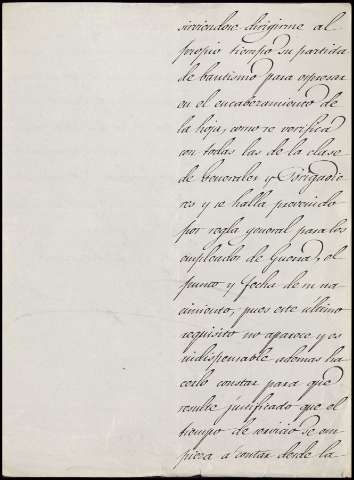 sirviendose dirigirme al
propio tiempo su partida
de bautismo para espresar
en el encabezamiento de
la hoja, como se verifica
con todas las de la clase
de Generales y Brigadie
res y se halla prevenido
por regla general para los
empleados de Guerra, el
punto y fecha de su na
cimiento, pues este último
requisito no aparece y es
indispensable ademas ha
cerlo constar para que
resulte justificado que el
tiempo de servicio se em
pieza a contar desde la